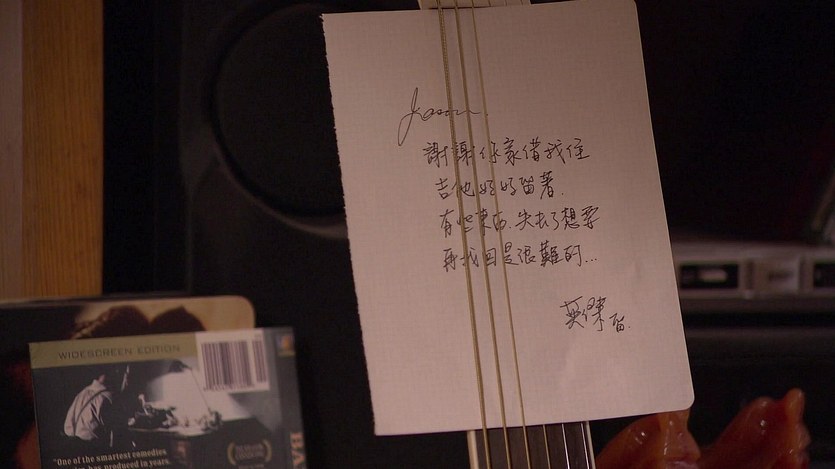 Jason.
謝謝你家借我住
吉他好好留著.
有些東西.失去了想要
再找回是很難的...
英傑 留.
WIDESCREEN EDITION
"One of the smartest comedies
has produced in years.
BA